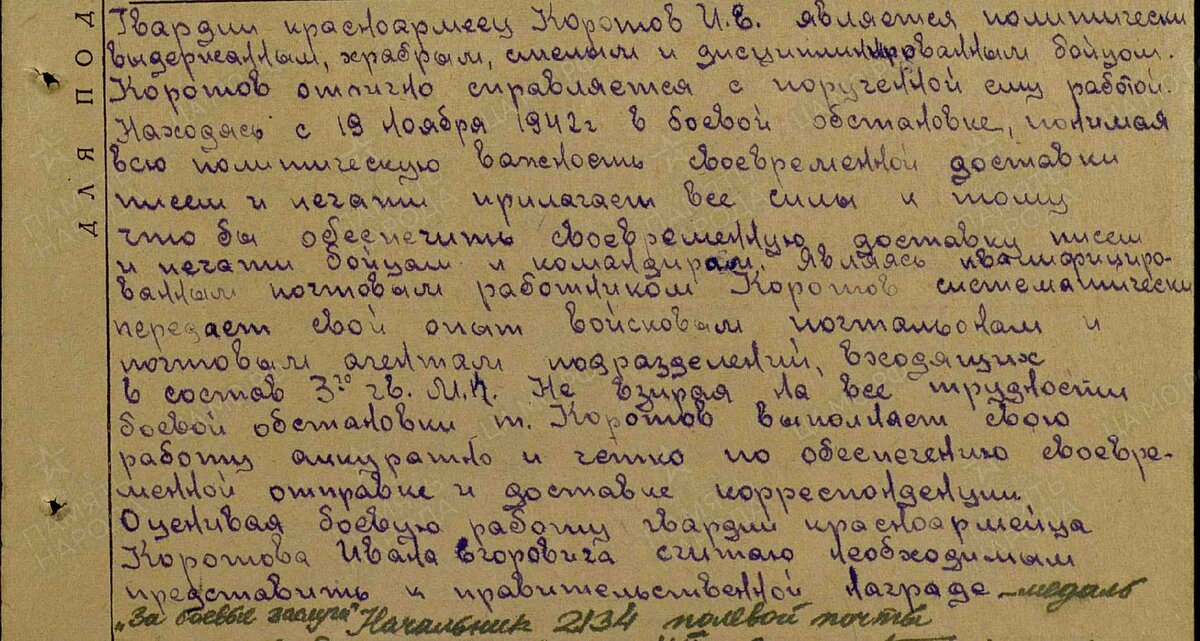 ДЛЯ ПОД
Гвардии красноармеец Коротов И.Е. является политически
выдержанным, храбрым, смелым и дисциплинированным бойцом.
Коротов отлично справляется с порученной ему работой.
Находясь с 19 ноября 1942г в боевой обстановке, понимая
всю политическую важность своевременной доставки
писем и печати прилагает все силы к тому
что бы обеспечить своевременную доставку писем
и печати бойцам и командирам. Являясь квалифициро-
ванным почтовым работником Коротов систематически
передает свой опыт войсковым почтальонам и
почтовым агентам подразделений, входящих
в состав 3го гв. М.К. Не взирая на все трудности
боевой обстановки т. Коротов выполняет свою
работу аккуратно и четко по обеспечению своевре-
менной отправке и доставке корреспонденции
Оценивая боевую работу гвардии красноармейца
Коротова Ивана Егоровича считаю необходимым
представить к правительственной награде - медаль
„За боевые заслуги" Начальник 2134 полевой почты